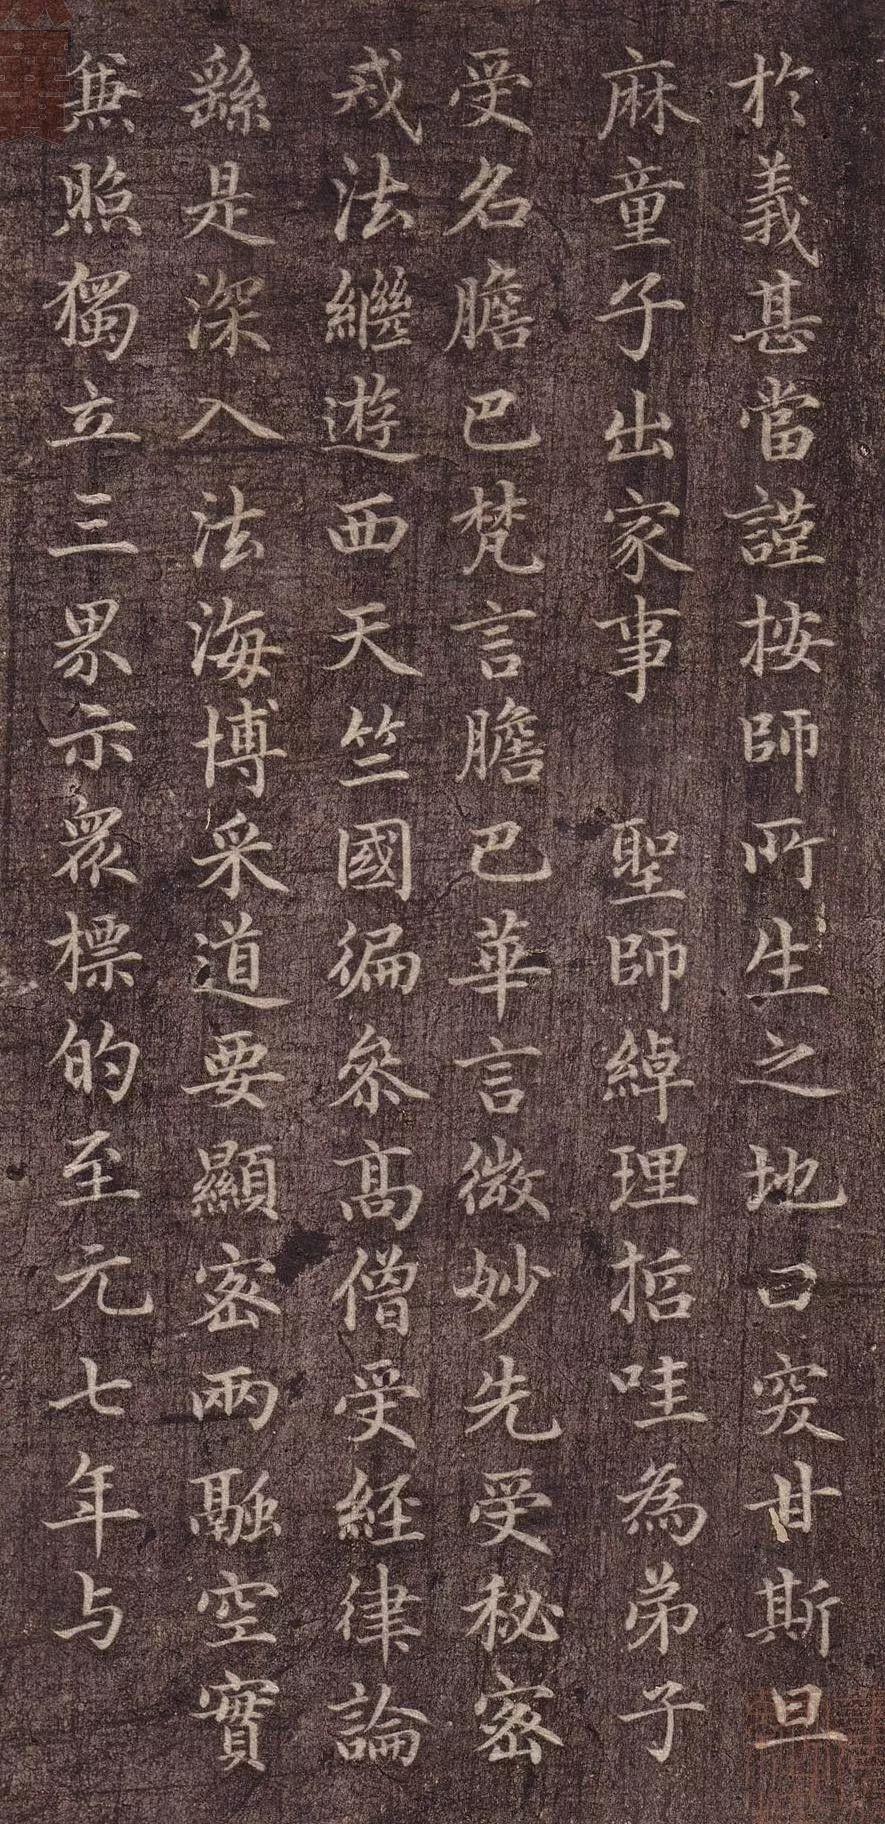 於義甚當謹按師所生之地曰突甘斯旦
麻童子出家事 聖師綽理哲哇為弟子
受名膽巴梵言膽巴華言微妙先受秘密
戒法繼遊西天竺國徧參高僧受經律論
繇是深入法海博采道要顯密兩融空實
無照獨立三界示眾標的至元七年与